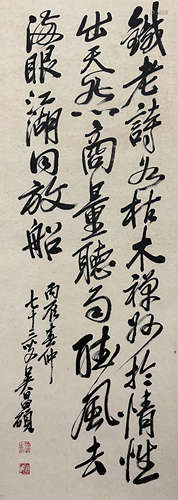 鐵老詩如枯木禪妙於情性
出天然商量聽雨聽風去
海眼江湖同放船
丙辰春仲
七十三叟吳昌碩